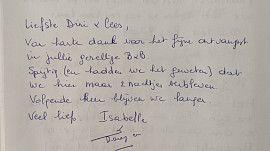 Liefste Dini & Cees,
Van harte dank voor het fijne ontvangst
in jullie gezellige B&B.
Spijtig (en hadden we het geweten) dat
we hier maar 2 nachtjes verbleven.
Volgende keer blijven we langer
Veel liefs. Isabelle